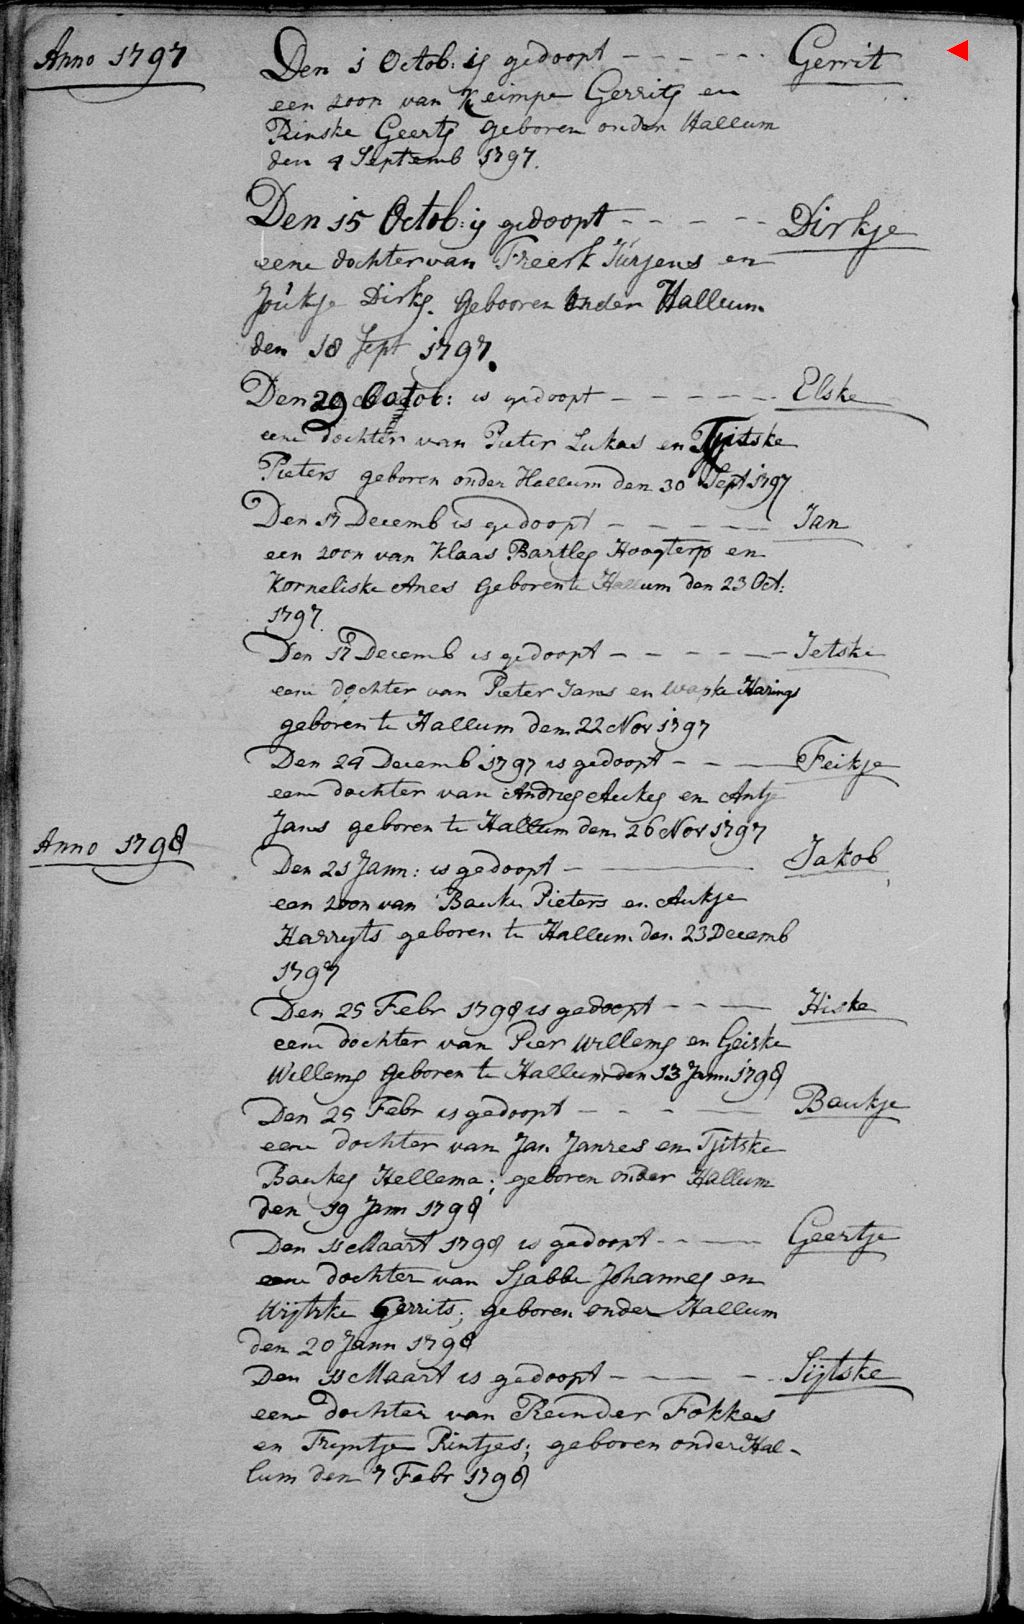 Anno 1797
Den 1 Octob: is gedoopt - - - - - Gerrit
een zoon van Keimpe Gerrits en
Rinske Geerts geboren onder Hallum
den 4 Septemb 1797.
Den 15 Octob: is gedoopt - - - - - Dirkje
eene dochter van Freerk Jurjens en
Joukje Dirks. Gebooren onder Hallum
den 18 Sept 1797.
Den 29 Octob: is gedoopt - - - - - - Elske
eene dochter van Pieter Lukas en Tjitske
Pieters geboren onder Hallum den 30 Sept 1797
Den 17 Decemb is gedoopt - - - - - Jan
een zoon van Klaas Bartles Hoogterp en
Korneliske Anes geboren te Hallum den 23 Oct:
1797.
Den 17 Decemb is gedoopt - - - - - Jetske
eene dochter van Pieter Jans en Wapke Harings
geboren te Hallum den 22 Nov 1797
Den 24 Decemb 1797 is gedoopt - - - Feikje
eene dochter van Andries Aukes en Antje
Jans geboren te Hallum den 26 Nov 1797
Anno 1798
Den 21 Jann: is gedoopt - — Jakob
een zoon van Bauke Pieters en Aukje
Harryts geboren te Hallum den 23 Decemb
1797
Den 25 Febr 1798 is gedoopt - - — Hiske
eene dochter van Pier Willems en Geiske
Willems geboren te Hallum den 13 Jann 1798
Den 25 Febr is gedoopt - - - — Baukje
eene dochter van Jan Janzes en Tjitske
Baukes Hellema; geboren onder Hallum
den 19 Jann 1798
Den 11 Maart 1798 is gedoopt - - — Geertje
eene dochter van Sjabbe Johannes en
Wijtske Gerrits; geboren onder Hallum
den 20 Jann 1798
Den 11 Maart is gedoopt - - - - Sijtske
eene dochter van Reinder Fokkes
en Trijntje Rintjes; geboren onder Hal-
lum den 7 Febr 1798